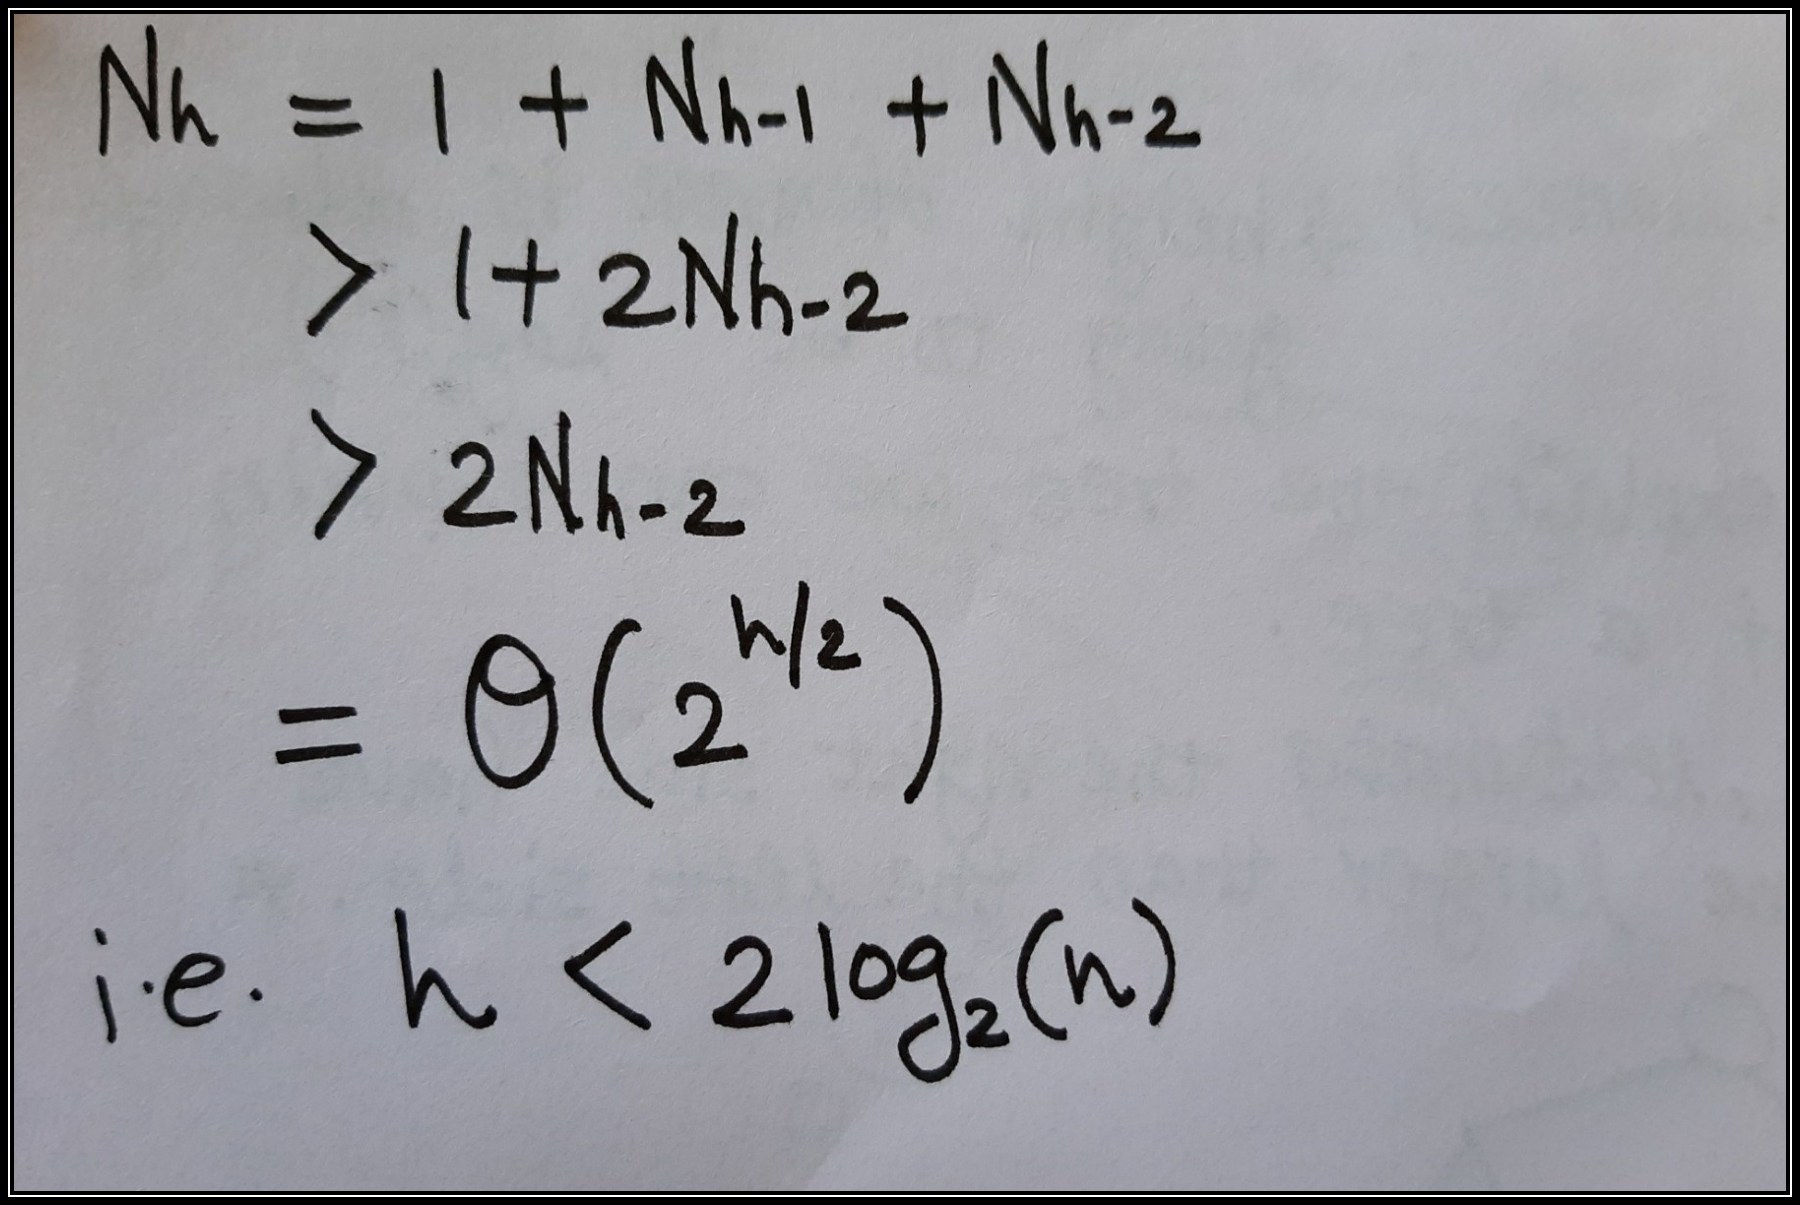 Nh = 1 + Nh-1 + Nh-2
> 1 + 2Nh-2
> 2Nh-2
= Θ(2^h/2)
i.e. h < 2 log₂(n)